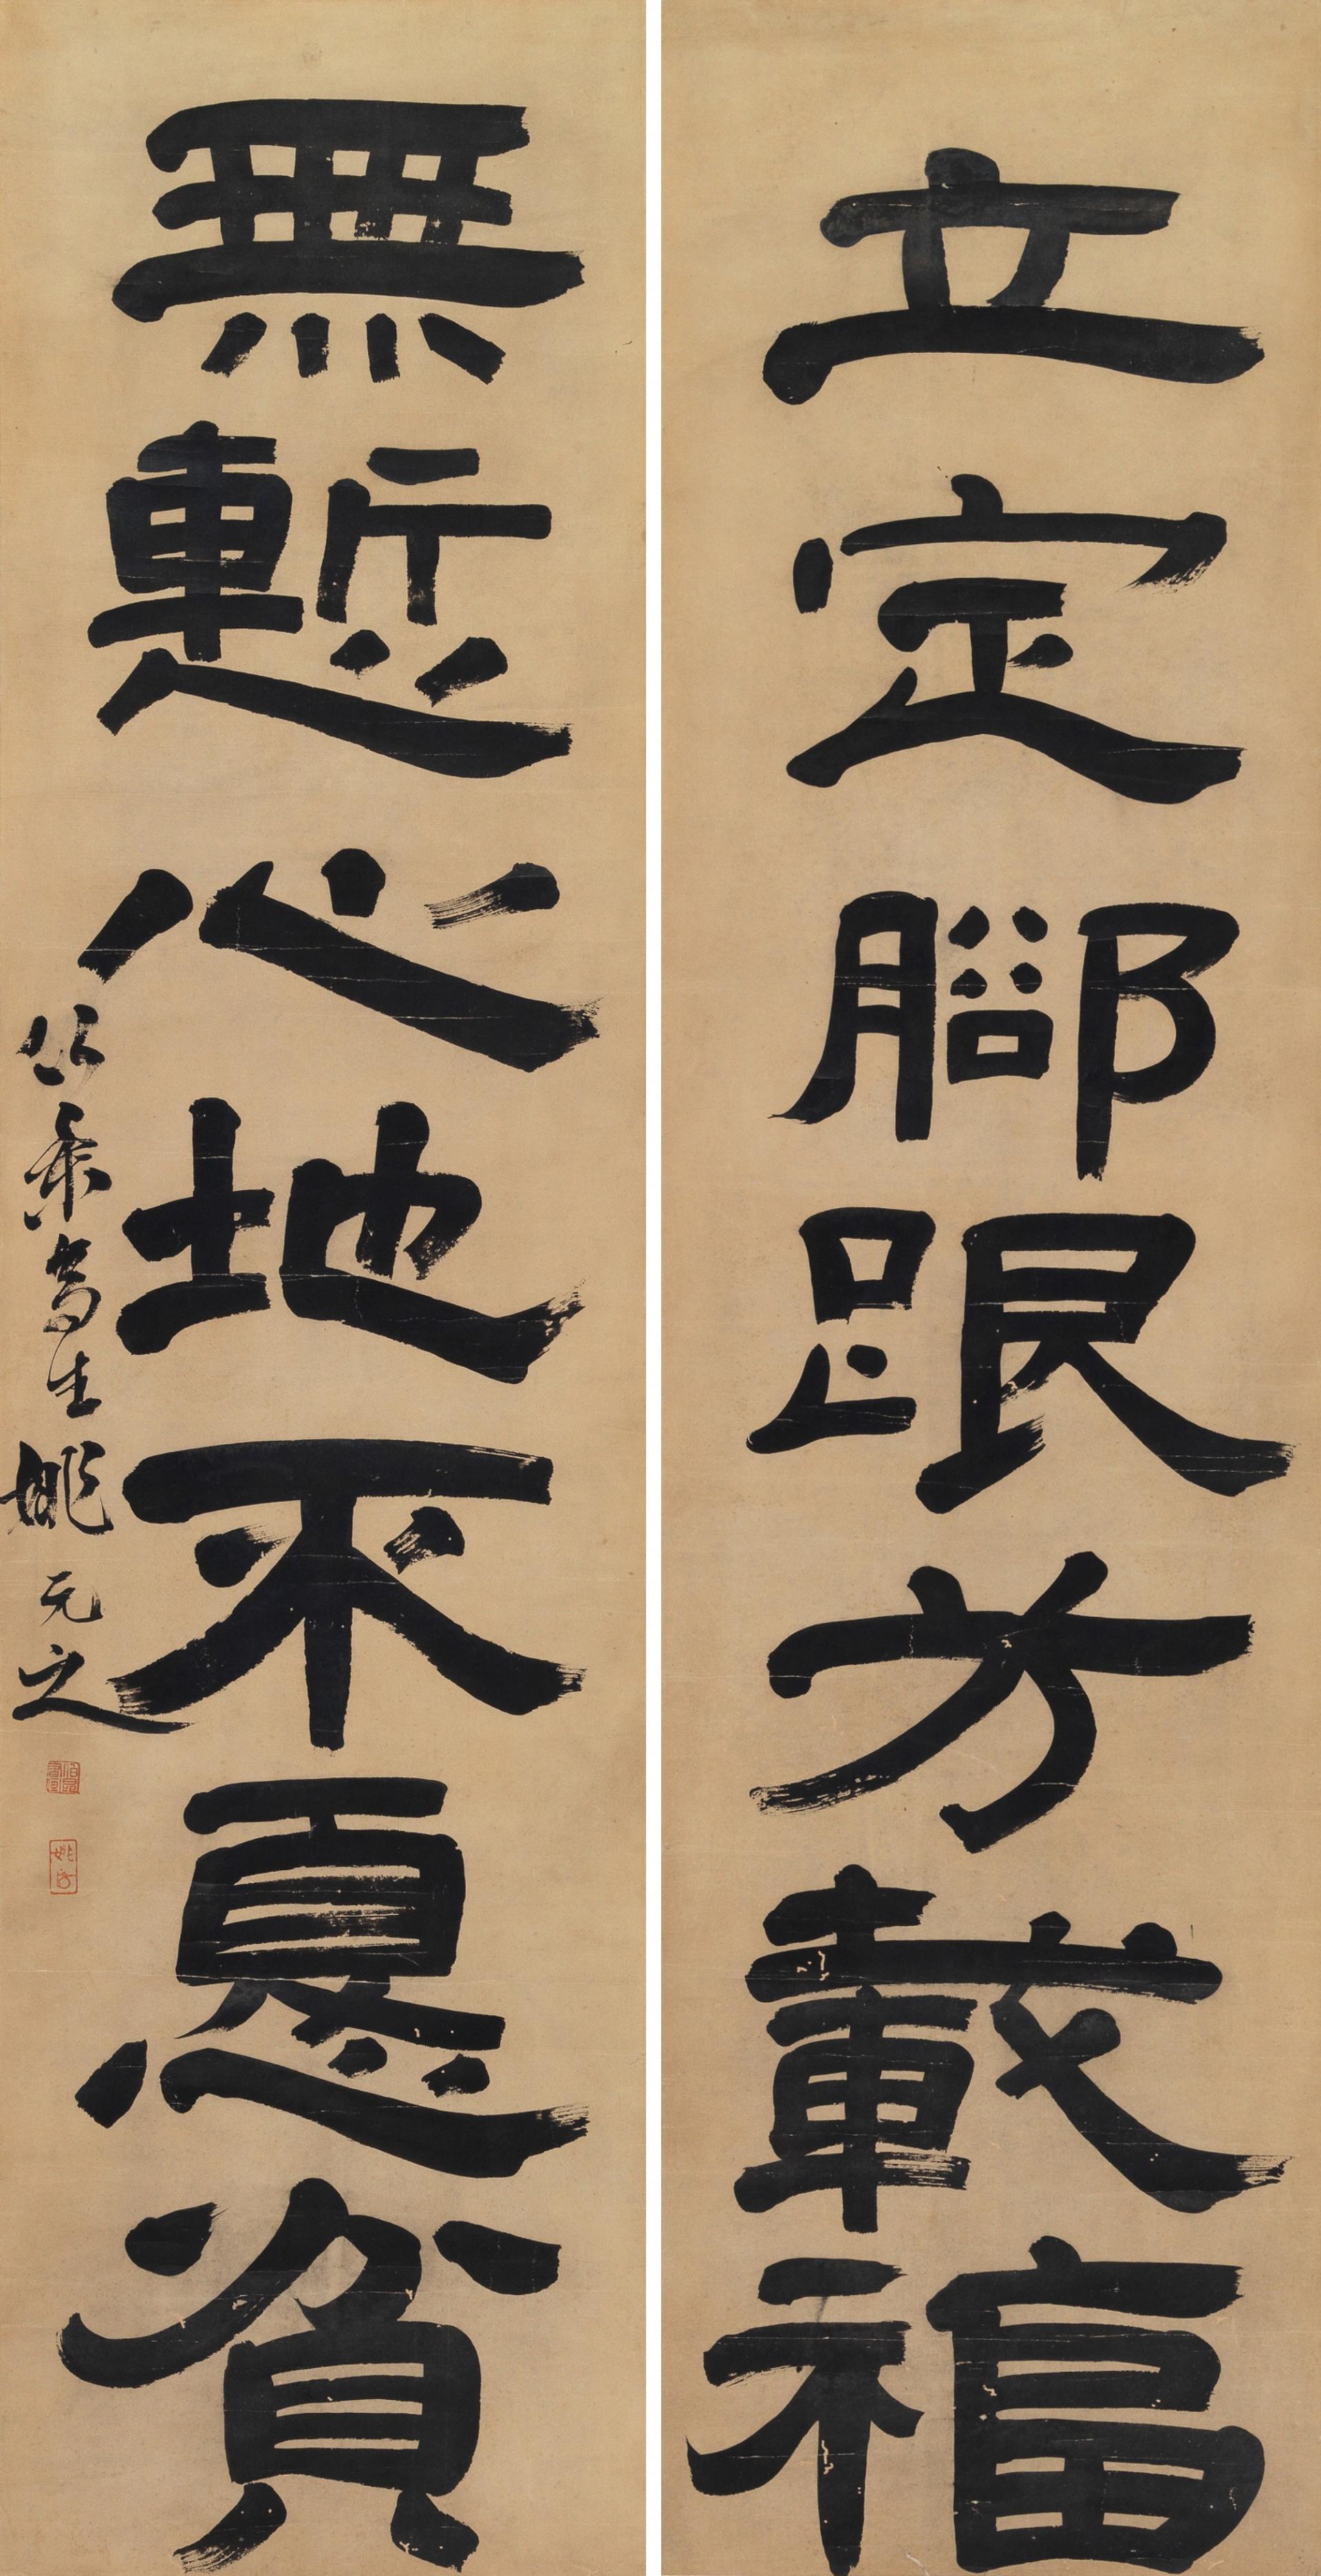 立定腳跟方載福
無慙心地不憂貧
竹葉亭生姚元之